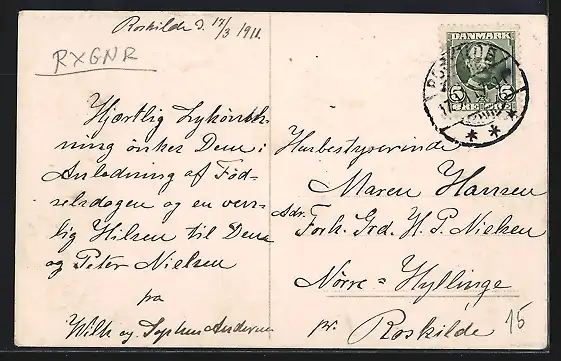 Roskilde d. 17/3 1911.
RXGNR
Hjærtlig Lykønsk-
ning ønskes Dem i
Anledning af Fød-
selsdagen og en vens-
lig Hilsen til Dem
og Peter Nielsen
fra
Wilh og Sophus Andersen
DANMARK
5
5
Husbestyrerinde
Maren Hansen
Adr. Forh. Grd. H. P. Nielsen
Nörre = Hyllinge
pr. Roskilde
15